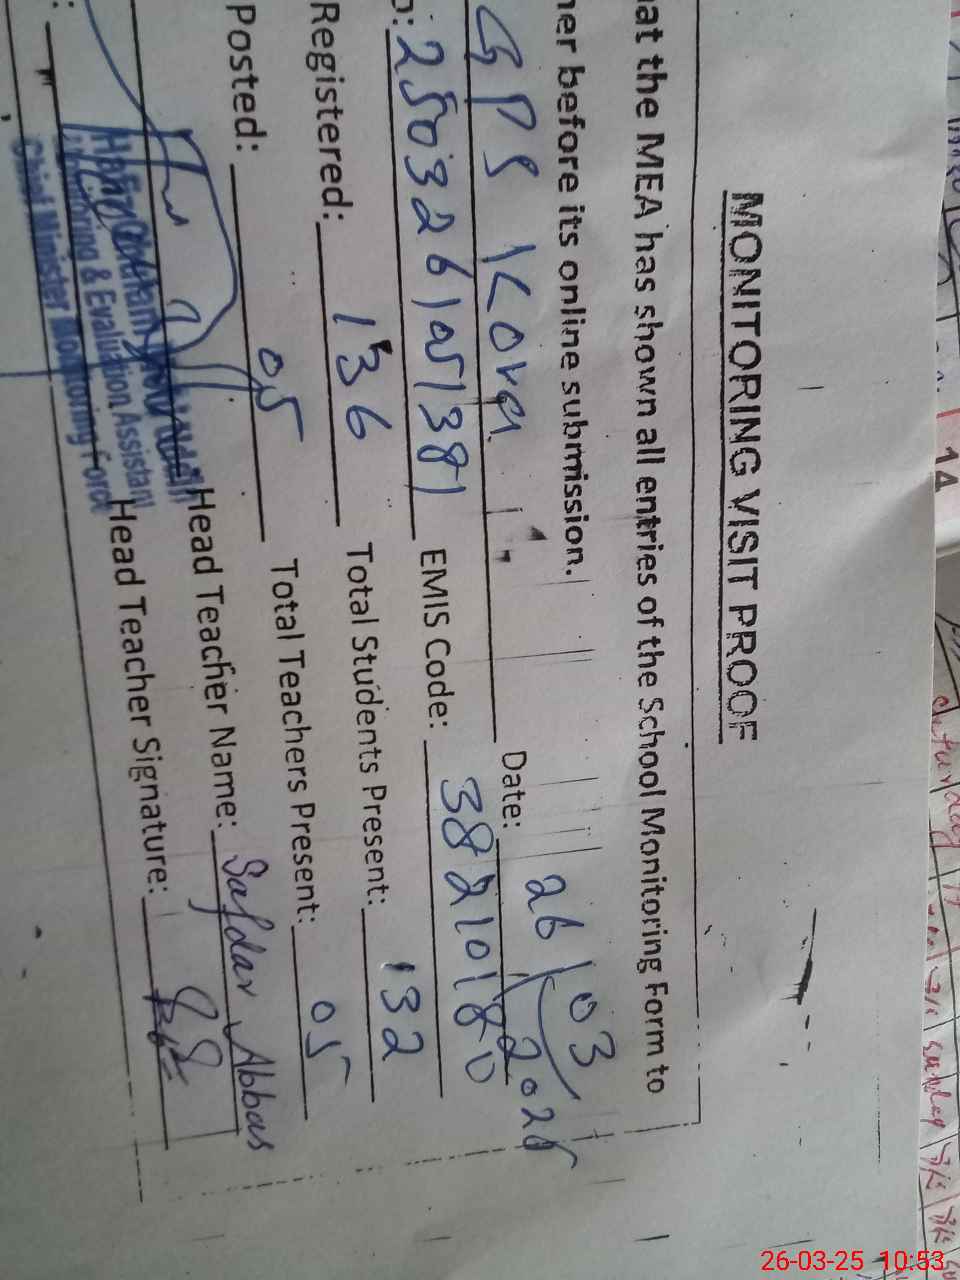 MONITORING VISIT PROOF
hat the MEA has shown all entries of the School Monitoring Form to
her before its online submission.
GPS Kova Date: 26/03/2025
o: 2503261051381 EMIS Code: 38210180
Registered: 136 Total Students Present: 132
Posted: 05 Total Teachers Present: 05
Head Teacher Name: Safdar Abbas
Head Teacher Signature:
Monitoring & Evaluation Assistant
Chief Minister Monitoring Force
14
sunday
26-03-25 10:53